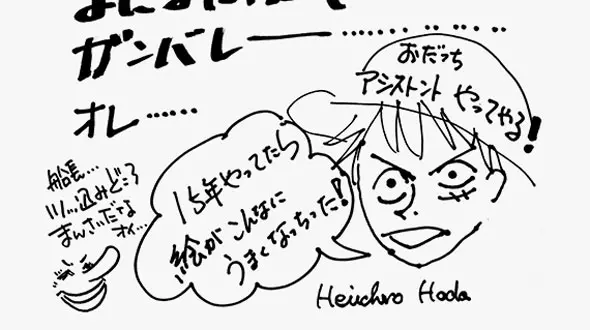 ガンバレーー…………
オレ……
おだっち
アシストント やってやる!
15年やってたら
絵がこんなに
うまくなっちった!
船長…
ツッ込みどころ
まんさいだな
オイ…
Heiichiro Hoda